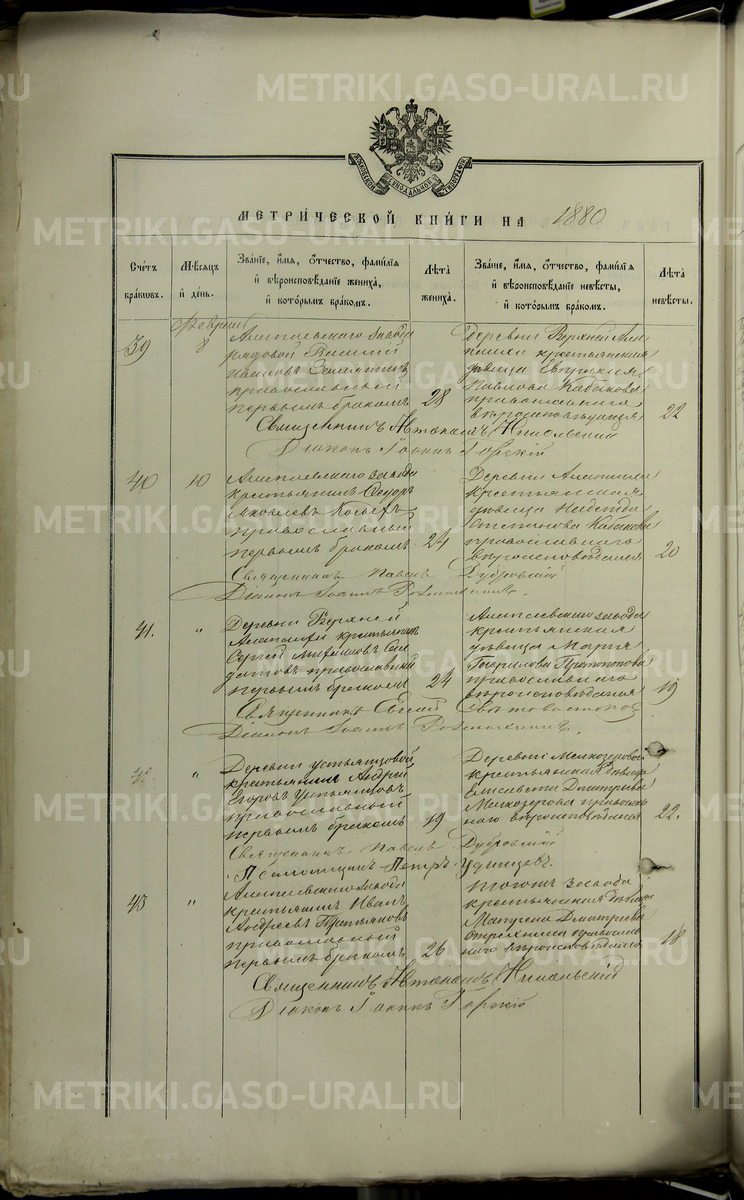 METRIKI.GASO-URAL.RU
МОСКОВСКОЙ СѴНОДАЛЬНОЙ ТИПОГРАФІИ
МЕТРИ́ЧЕСКОЙ КНИ́ГИ НА 1880
Счетъ браковъ.
Мѣсяцъ и день.
Званіе, имя, отчество, фамилія и вѣроисповѣданіе жениха, и которымъ бракомъ.
Лѣта жениха.
Званіе, имя, отчество, фамилія и вѣроисповѣданіе невѣсты, и которымъ бракомъ.
Лѣта невѣсты.
Февраль
39
8
Алапаевскаго завода
рядовой Василій
Ивановъ
православный
первымъ бракомъ
28
Деревни Верхней Ала
пашихи крестьянская
дѣвица Евдокія
Павлова Кабакова
православнаго
вѣроисповѣданія
22
Священникъ Автономъ Никольскій
Діаконъ Іоаннъ Горскій
40
10
Алапаевскаго завода
крестьянинъ Ѳедоръ
Яковлевъ
православный
первымъ бракомъ
24
Деревни Алапаихи
крестьянская
дѣвица Надежда
Степанова Кабакова
православнаго
вѣроисповѣданія
20
Священникъ Павелъ Дубровскій
Діаконъ Іоаннъ
41.
"
Деревни Верхней
Алапаихи крестьянинъ
Сергѣй
православный
первымъ бракомъ
24
Алапаевскаго завода
крестьянская
дѣвица Марѳа
Гаврилова Протопопова
православнаго
вѣроисповѣданія
19
Священникъ
Діаконъ Іоаннъ
42.
"
Деревни Устьянцовой
крестьянинъ Андрей
Егоровъ Устьянцовъ
православный
первымъ бракомъ
19
Деревни Мелкозеровой
крестьянская дѣвица
Елисавета Дмитріева
Мелкозерова православ
наго вѣроисповѣданія
22.
Священникъ Павелъ Дубровскій
Псаломщикъ Петръ Удинцевъ
43
"
Алапаевскаго завода
крестьянинъ Иванъ
Андреевъ Третьяковъ
православный
первымъ бракомъ
26
Тогожъ завода
крестьянская дѣвица
Дмитріева
православ
наго вѣроисповѣданія
18
Священникъ Автономъ Никольскій
Діаконъ Іоаннъ Горскій